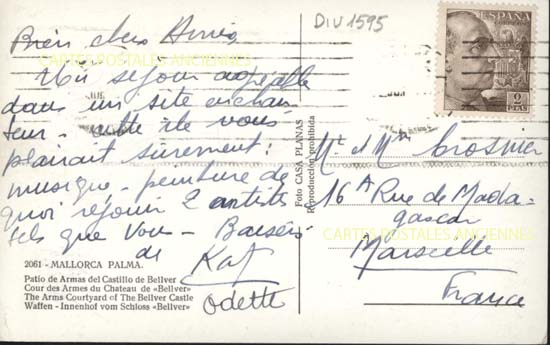 DIV 1595
ESPAÑA
CORREOS
2
PTAS
Bien chers Amis,
séjour agréable
dans un site enchan
teur - cette île vous
plairait sûrement:
musique, peinture de
quoi réjouir 2 artistes
tels que vous - Baisers
de Kat
Odette
CARTES POSTALES ANCIENNES
Foto CASA PLANAS
Reproducción prohibida
Mr et Mme Crosnier
16 A Rue de Mada-
gascar
CARTES POSTALES ANCIENNES
Marseille
France
2061 - MALLORCA PALMA.
Patio de Armas del Castillo de Bellver
Cour des Armes du Chateau de «Bellver»
The Arms Courtyard of The Bellver Castle
Waffen - Innenhof vom Schloss «Bellver»